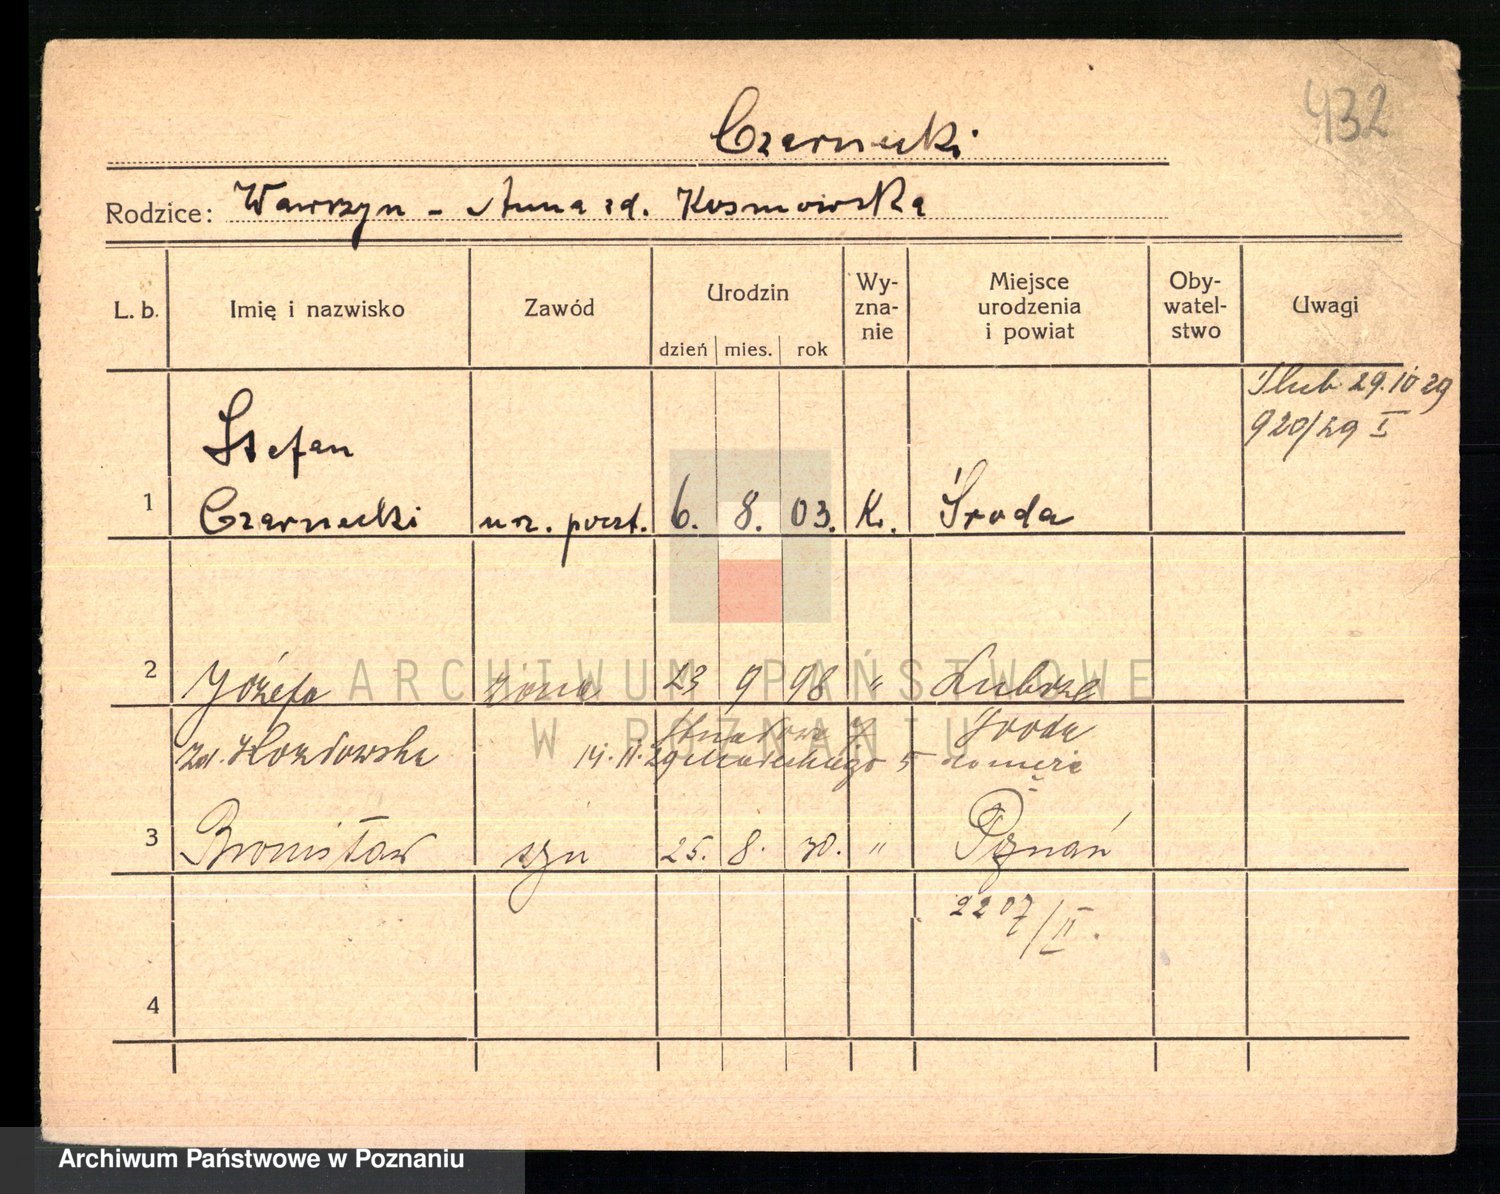 432
Czarnecki
Rodzice: Wawrzyn - Anna zd. Kosmowska
L. b. Imię i nazwisko Zawód Urodzin Wy-zna-nie Miejsce urodzenia i powiat Oby-watel-stwo Uwagi
dzień mies. rok
Ślub 29.10 29
920/29 I
Stefan
1 Czarnecki urz. poczt. 6. 8. 03. K. Środa
2 Józefa żona 23 9 98 "
Środa
zd. 14. 11. 29 5
3 Bronisław syn 25. 8. 30. " Poznań
2207/II.
4
ARCHIWUM PAŃSTWOWE
W POZNANIU
Archiwum Państwowe w Poznaniu